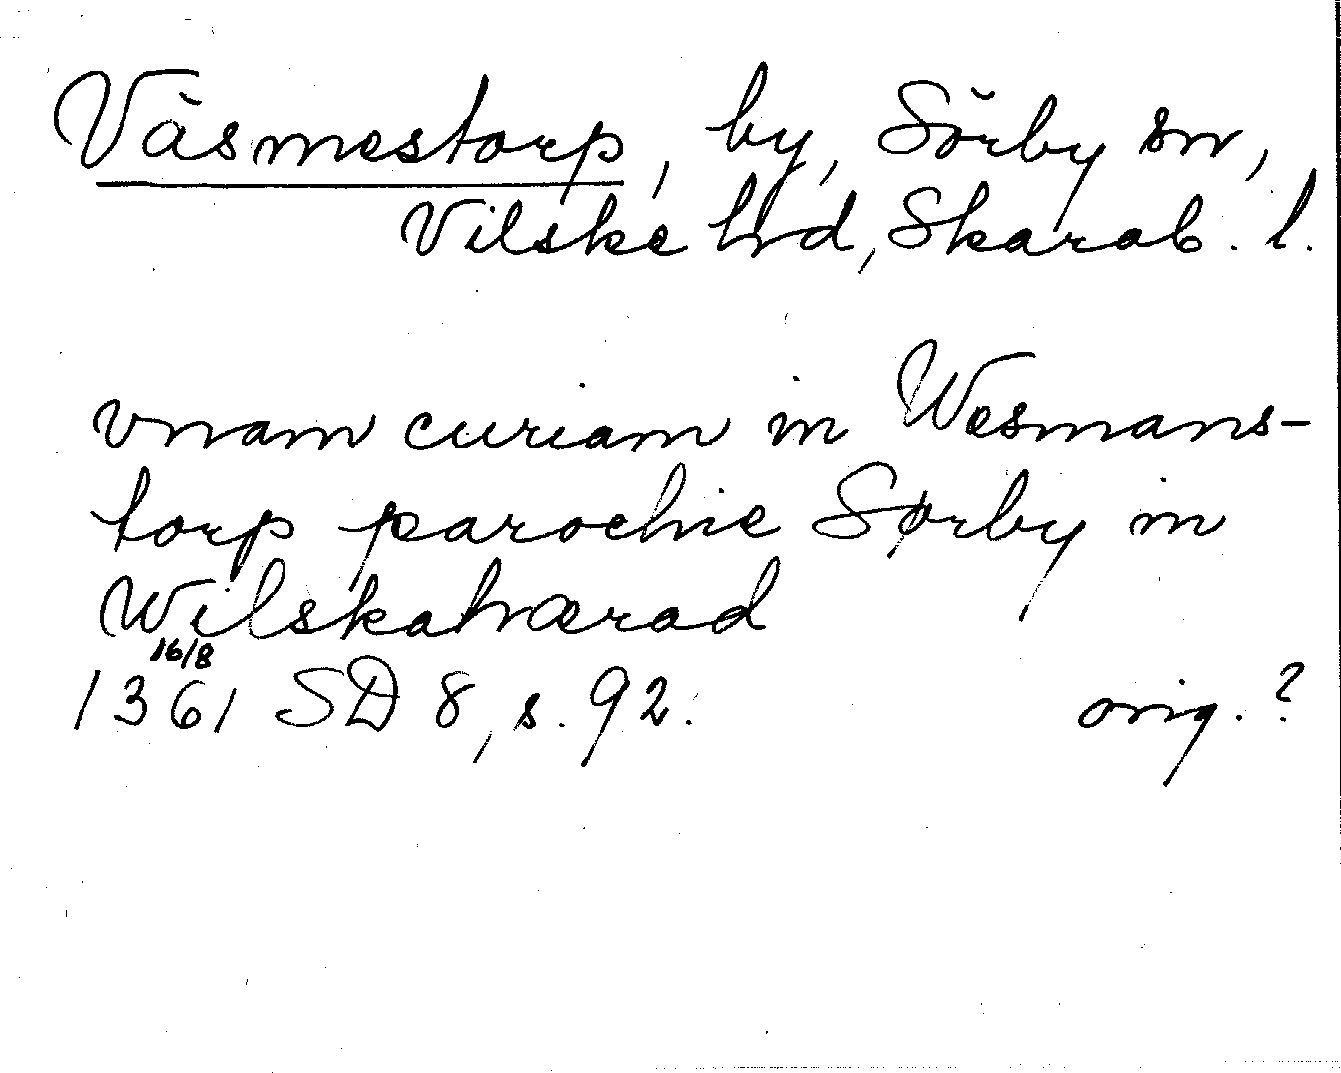 Väsmestorp, by, Sörby sn,
Vilske hrd, Skarab. l.
vnam curiam in Wesmans-
torp parochie Sørby in
Wilskahærad
16/8
1361 SD 8, s. 92. orig. ?